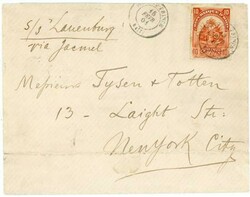 S/S "Lauenburg"
via Jacmel
Messieurs Tysen & Totten
13 - Laight Str:
New York City